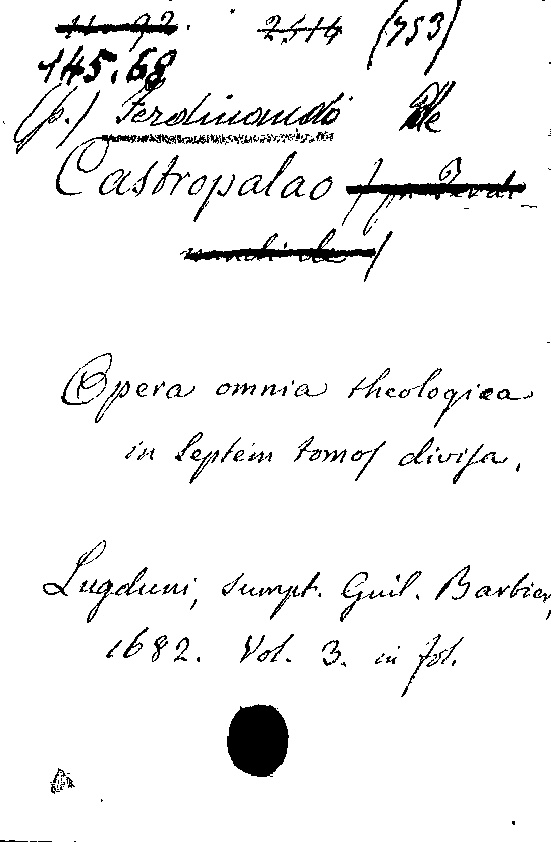 2514 (753)
145.68
(p.) Ferdinando de
Castropalao
Opera omnia theologica
in septem tomos divisa.
Lugduni, sumpt. Guil. Barbier,
1682. Vol. 3. in fol.